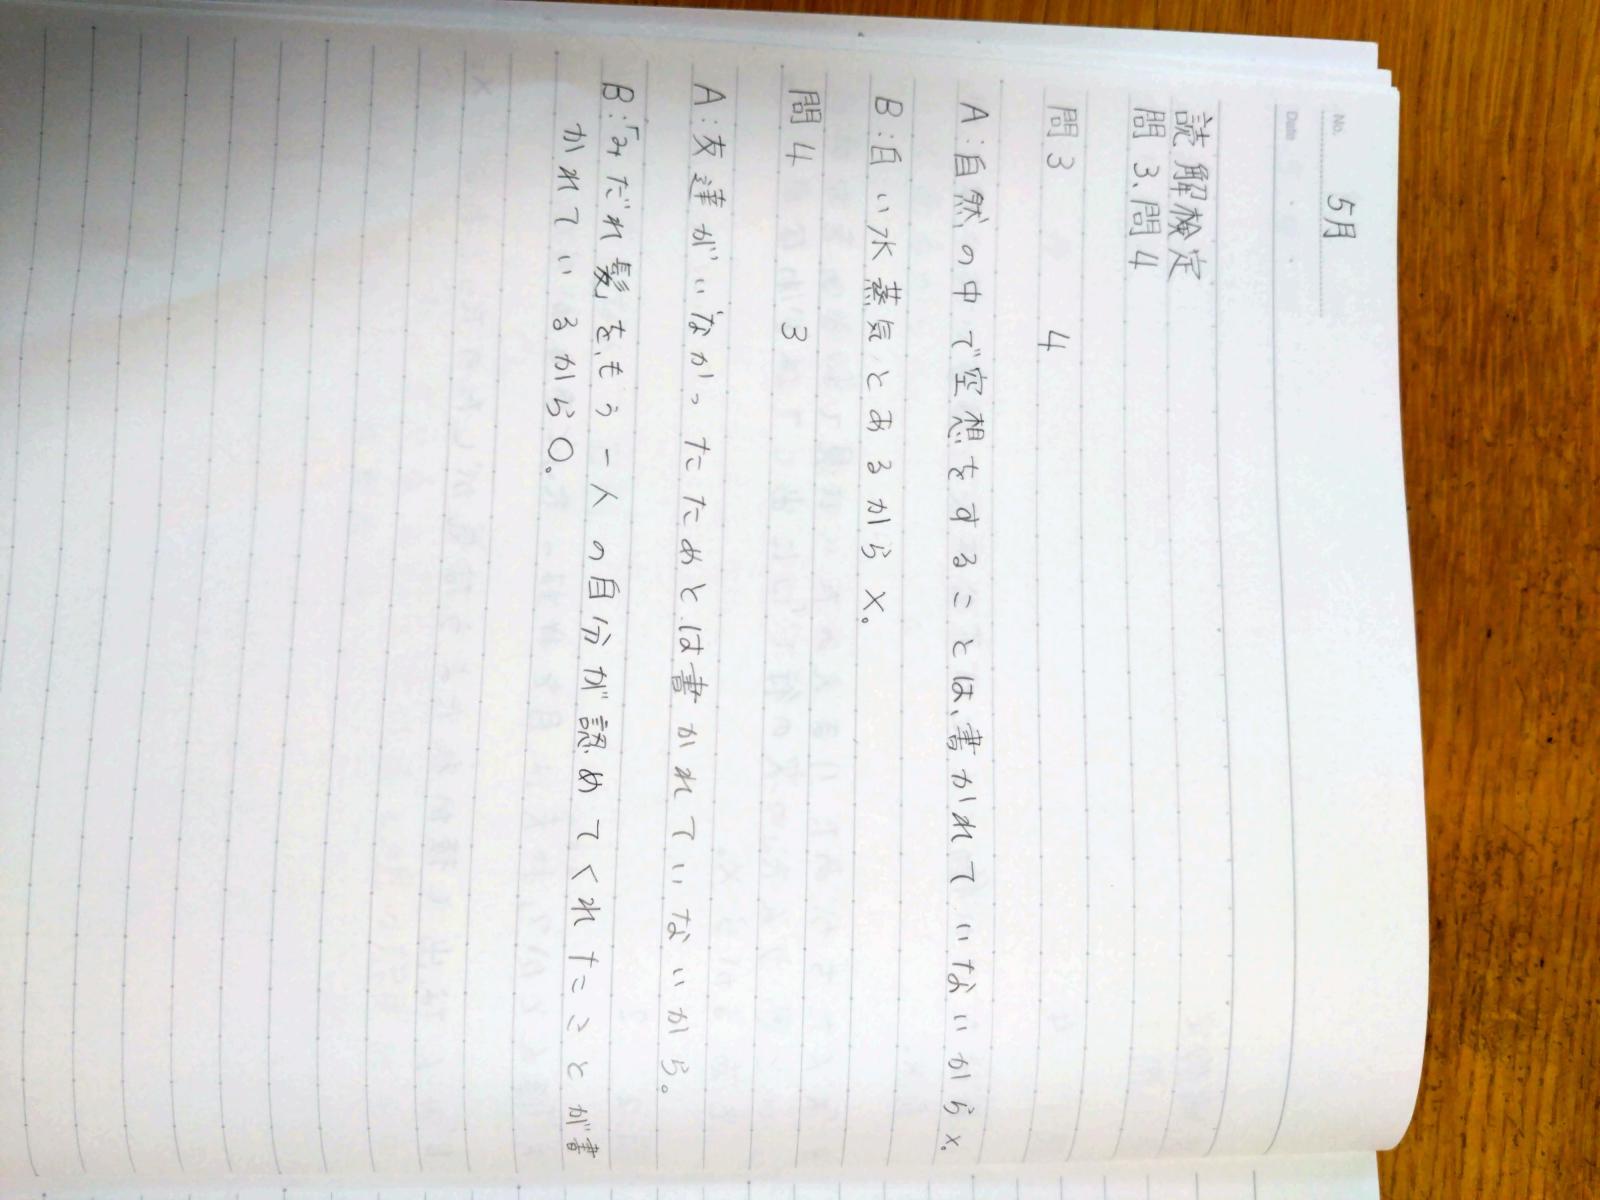 No.
5月
Date
読解検定
問3、問4
問3　4
A:自然の中で空想をすることは、書かれていないから×。
B:白い水蒸気とあるから×。
問4　3
A:友達がいなかったためとは書かれていないから。
B:「みだれ髪」を、もう一人の自分が認めてくれたことが書
かれているから○。